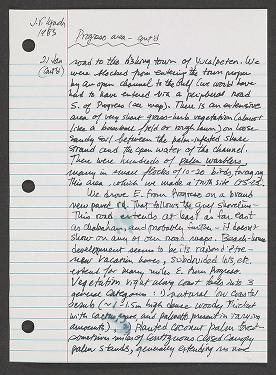 J.F. Lynch
1983
Progreso area - cont'd
21 Jan
(cont'd)
road to the fishing town of Yucalpeten. We
were blocked from entering the town proper
by an open channel to the Gulf (we would have
had to have entered via a peripheral road
S. of Progreso (see map). There is an extensive
area of very short grass-herb vegetation (almost
like a baseball field or rough lawn) on loose
sandy soil between the palm-vegetated shore
strand and the open water of the channel.
There were hundreds of palm warblers,
many in small flocks of 10-20 birds, foraging
this area, which we made a
We drove E. from Progreso on a brand
new paved rd. that follows the gulf shoreline.
This road extends at least as far east
as Chabihau, and probably further - it doesn't
show on any of our road maps. Beach-house
development seems to be its raison d'etre -
new vacation homes, subdivided lots, etc.
extend for many miles E. from Progreso.
Vegetation right along coast falls into 3
general categories: 1) natural low coastal
scrub (~1-1.5m high dense woody thicket
with cactus, and palmetto present in varying
amounts), 2) Planted coconut palm forest -
sometimes miles of contiguous closed canopy
palm stands, generally extending no more